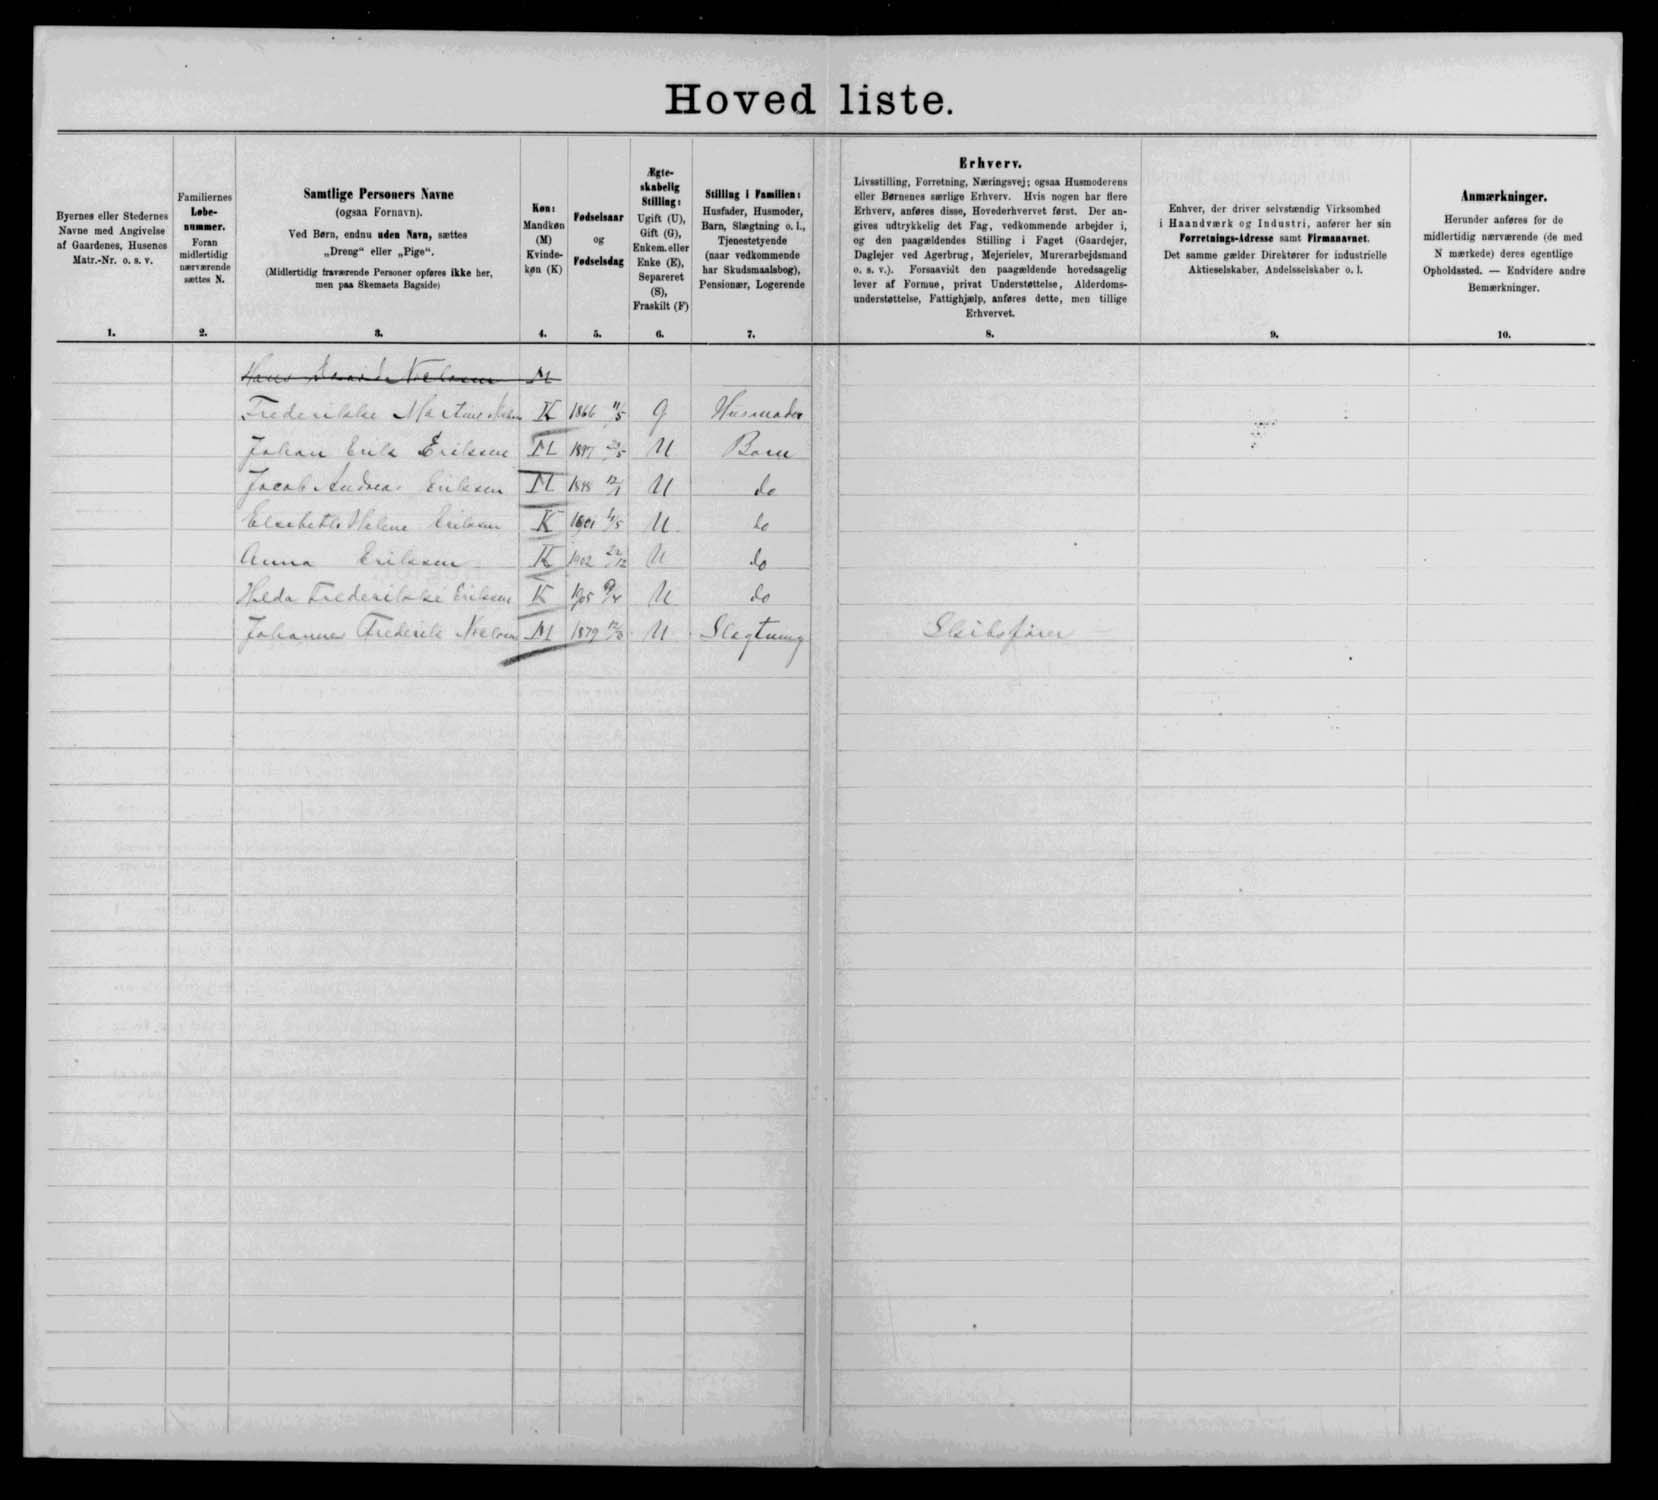 Hoved liste.
Byernes eller Stedernes
Navne med Angivelse
af Gaardenes, Husenes
Matr.-Nr. o. s. v.
1.
Familiernes
Løbe-
nummer.
Foran
midlertidig
nærværende
sættes N.
2.
Samtlige Personers Navne
(ogsaa Fornavn).
Ved Børn, endnu uden Navn, sættes
„Dreng“ eller „Pige“.
(Midlertidig fraværende Personer opføres ikke her,
men paa Skemaets Bagside)
3.
Køn:
Mandkøn
(M)
Kvinde-
køn (K)
4.
Fødselsaar
og
Fødselsdag
5.
Ægte-
skabelig
Stilling:
Ugift (U),
Gift (G),
Enkem. eller
Enke (E),
Separeret
(S),
Fraskilt (F)
6.
Stilling i Familien:
Husfader, Husmoder,
Barn, Slægtning o. l.,
Tjenestetyende
(naar vedkommende
har Skudsmaalsbog),
Pensionær, Logerende
7.
Erhverv.
Livsstilling, Forretning, Næringsvej; ogsaa Husmoderens
eller Børnenes særlige Erhverv. Hvis nogen har flere
Erhverv, anføres disse, Hovederhvervet først. Der an-
gives udtrykkelig det Fag, vedkommende arbejder i,
og den paagældendes Stilling i Faget (Gaardejer,
Daglejer ved Agerbrug, Mejerielev, Murerarbejdsmand
o. s. v.). Forsaavidt den paagældende hovedsagelig
lever af Formue, privat Understøttelse, Alderdoms-
understøttelse, Fattighjælp, anføres dette, men tillige
Erhvervet.
8.
Enhver, der driver selvstændig Virksomhed
i Haandværk og Industri, anfører her sin
Forretnings-Adresse samt Firmanavnet.
Det samme gælder Direktører for industrielle
Aktieselskaber, Andelsselskaber o. l.
9.
Anmærkninger.
Herunder anføres for de
midlertidig nærværende (de med
N mærkede) deres egentlige
Opholdssted. — Endvidere andre
Bemærkninger.
10.
Hans Nielsen M
Frederikke Martine K 1866 11/5 G Husmoder
Johan Erik Eriksen M 5 U Barn
Jacob Andreas Eriksen M U do
Elsebeth Helene Eriksen K 1901 U do
Anna Eriksen K 1902 22/12 U do
Hilda Frederikke Eriksen K 1905 U do
Johannes Frederik Nielsen M 1879 U Slægtning Skibsfører